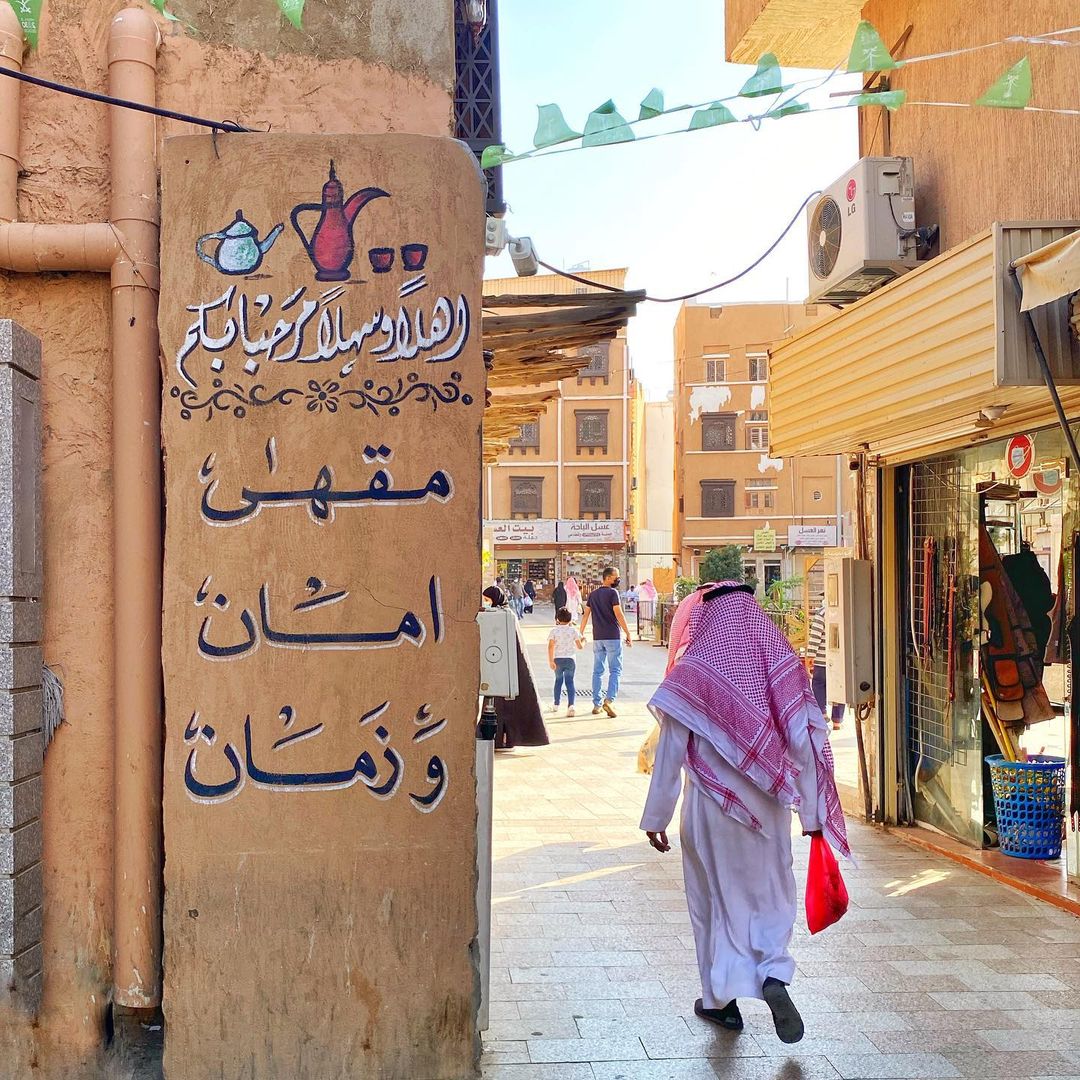 اهلاً وسهلاً مرحبا بكم
مقهىٰ
امانٌ
وَزمانٌ
LG
بيت العسل
عسل الباحة